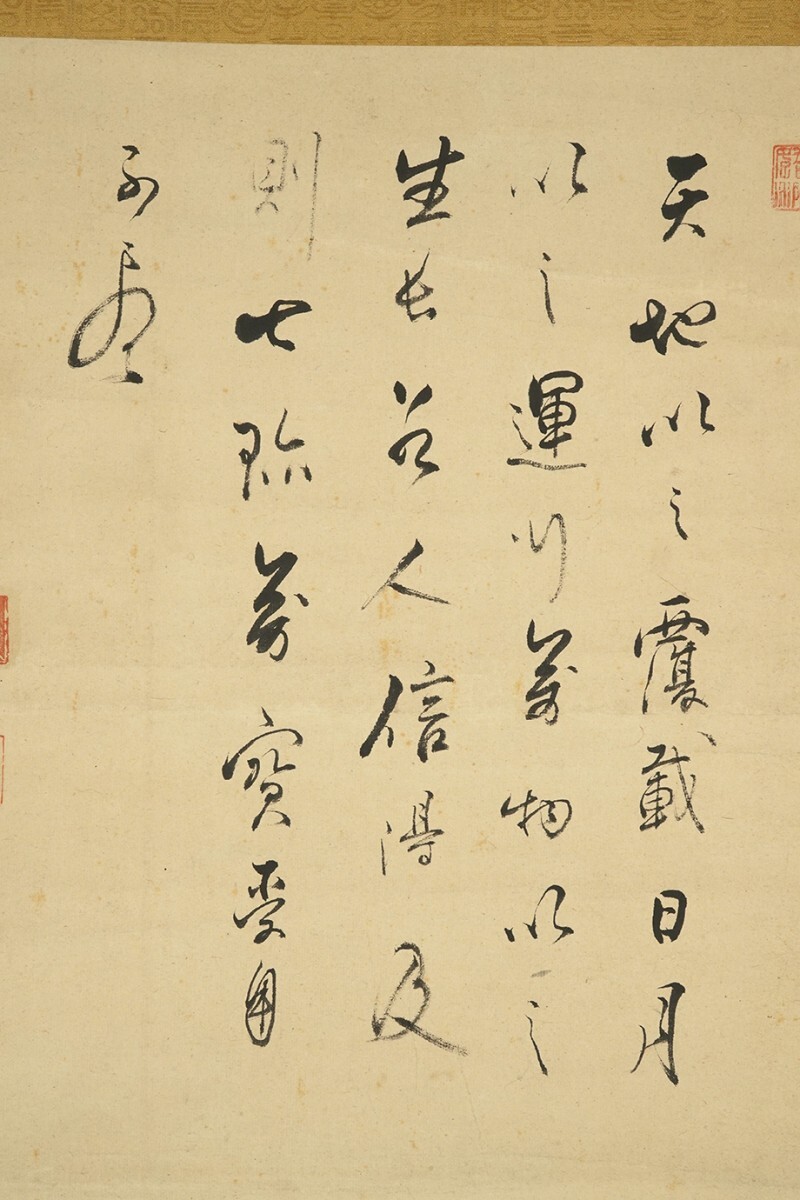 天地以之覆載日月
以之運行萬物以之
生長若人信得及
則七珍萬寶受用
不尽